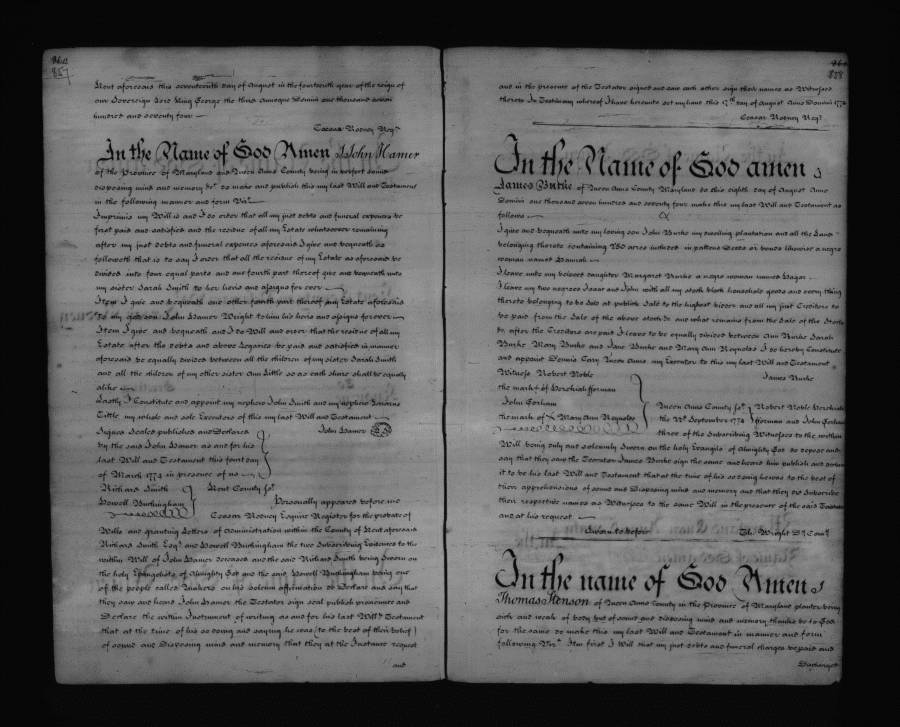 857
Kent aforesaid this seventeenth day of August in the fourteenth year of the reign of
our Sovereign Lord King George the third Annoque Domini one thousand seven
hundred and seventy four
Caesar Rodney Regr
In the Name of God Amen I John Hamer
of the Province of Maryland and Queen Anns County being in perfect sound
disposing mind and memory &c do make and publish this my last Will and Testament
in the following manner and form Vizt
Imprimis my Will is and I do order that all my just debts and funeral expences be
first paid and satisfied and the residue of all my Estate whatsoever remaining
after my just debts and funeral expences aforesaid I give and bequeath as
followeth that is to say I order that all the residue of my Estate as aforesaid be
divided into four equal parts and one fourth part thereof give and bequeath unto
my sister Sarah Smith to her heirs and assigns for ever
Item I give and bequeath one other fourth part thereof my Estate aforesaid
To my godson John Hamer Wright to him his heirs and assigns forever
Item I give and bequeath and I do Will and order that the residue of all my
Estate after the debts and above Legacies be paid and satisfied in manner
aforesaid be equally divided between all the children of my sister Sarah Smith
and all the children of my other sister Ann Little so as each share shall be equally
alike
Lastly I Constitute and appoint my nephew John Smith and my nephew
Little my whole and sole Executors of this my last Will and Testament
Signed Sealed published and Declared John Hamer
by the said John Hamer as and for his
last Will and Testament this fourth day
of March 1774 in presence of us
Richard Smith Kent County Sst
Howell Buckingham Personally appeared before me
Caesar Rodney Esquire Register for the probate of
Wills and granting Letters of administration within the County of Kent aforesaid
Richard Smith Esqr and Howell Buckingham the two Subscribing Evidences to the
within Will of John Hamer deceased and the said Richard Smith being Sworn on
the holy Evangelists of Almighty God and the said Howell Buckingham being one
of the people called Quakers on his solemn affirmation do Declare and say that
they saw and heard John Hamer the Testator sign seal publish pronounce and
Declare the within Instrument of writing as and for his last Will & Testament
that at the time of his so doing and saying he was (to the best of their belief)
of sound and Disposing mind and memory that they at the Instance request
and
858
and in the presence of the Testator signed and saw each other sign their names as Witnesses
thereto In Testimony whereof I have hereunto set my hand this 17th day of August Anno Domini 1774
Ceasar Rodney Regr
In the Name of God amen I
James Burke of Queen Anns County Maryland do this eighth day of August Anno
Domini one thousand seven hundred and seventy four make this my last Will and Testament as
follows
I give and bequeath unto my loving son John Burke my dwelling plantation and all the Land
belonging thereto containing 250 acres included in pattens Deeds or bonds likewise a negro
woman named Hannah
I leave unto my beloved daughter Margaret Burke a negro woman named Hagar
I leave my two negroes Isaac and John with all my stock block household goods and every thing
thereto belonging to be Sold at publick Sale to the highest bidder and all my just Creditors to
be paid from the Sale of the above stock &c and what remains from the Sale of the Stock
&c after the Creditors are paid I leave to be equally divided between Ann Burke Sarah
Burke Mary Burke and Jane Burke and Mary Ann Reynolds I do hereby Constitute
and appoint Dennis Cary Queen Anns my Executor to this my last Will and Testament
Witness Robert Noble James Burke
the mark of Hezekiah fforman
John Gorham Queen Anns County Sst Robert Noble Hezekiah
the mark of X Mary Ann Reynolds the 22d September 1774 fforman and John Gorham
three of the Subscribing Witnesses to the within
Will being duly and solemnly Sworn on the holy Evangels of Almighty God do depose and
say that they saw the Testator James Burke sign the same and heard him publish and declare
it to be his last Will and Testament that at the time of his so doing he was to the best of
their apprehensions of sound and Disposing mind and memory and that they did Subscribe
their respective names as Witnesses to the same Will in the presence of the said Testator
and at his request
Sworn to before Th: Wright Dy Comry
In the name of God Amen I
Thomas Henson of Queen Anns County in the Province of Maryland planter being
sick and weak of body but of sound and disposing mind and memory thanks be to God
for the same do make this my last Will and Testament in manner and form
following Vizt Item first I Will that my just debts and funeral charges be paid and
Discharged